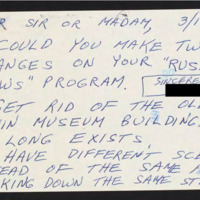 R SIR OR MADAM, 3/1
COULD YOU MAKE TW
ANGES ON YOUR "RUS
WS" PROGRAM.
SINCERE
GET RID OF THE OL
IN MUSEUM BUILDING
LONG EXISTS.
HAVE DIFFERENT SCE
EAD OF THE SAME
KING DOWN THE SAME ST